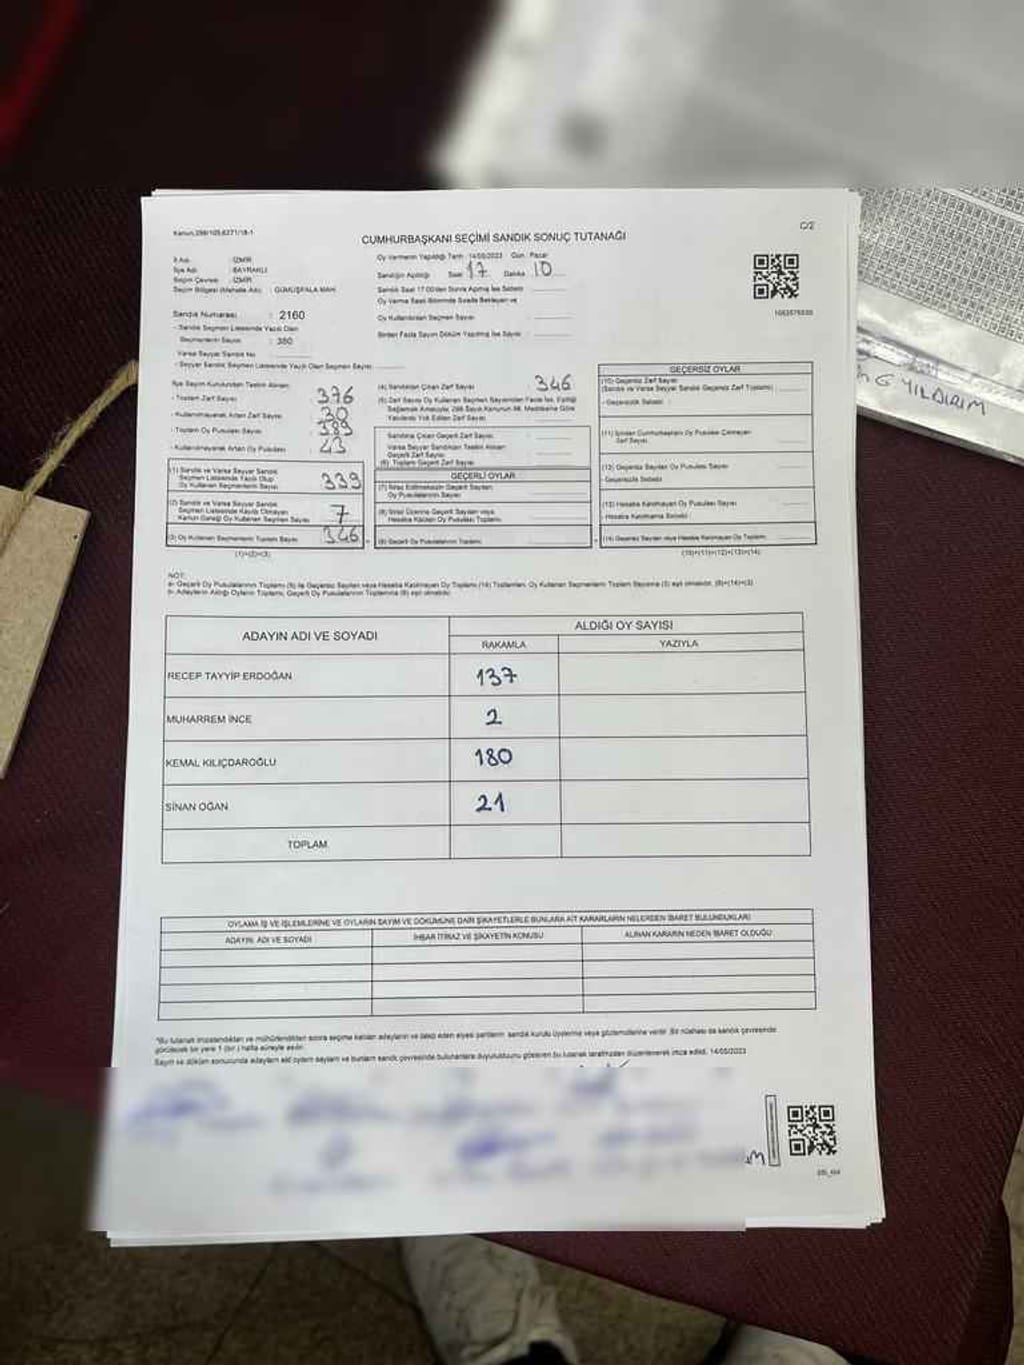 Kanun.298/105,6271/18-1
C/2
CUMHURBAŞKANI SEÇİMİ SANDIK SONUÇ TUTANAĞI
İl Adı : İZMİR
İlçe Adı : BAYRAKLI
Seçim Çevresi : İZMİR
Seçim Bölgesi (Mahalle Adı) : GÜMÜŞPALA MAH.
Sandık Numarası : 2160
- Sandık Seçmen Listesinde Yazılı Olan
Seçmenlerin Sayısı : 380
Varsa Seyyar Sandık No
- Seyyar Sandık Seçmen Listesinde Yazılı Olan Seçmen Sayısı
Oy Vermenin Yapıldığı Tarih : 14/05/2023 Gün : Pazar
Sandığın Açıldığı Saat 17 Dakika 10
Sandık Saat 17.00'den Sonra Açılmış İse Sebebi
Oy Verme Saati Bitiminde Sırada Bekleyen ve
Oy Kullandırılan Seçmen Sayısı
Birden Fazla Sayım Döküm Yapılmış İse Sayısı
1053576535
İlçe Seçim Kurulundan Teslim Alınan
- Toplam Zarf Sayısı : 376
- Kullanılmayarak Artan Zarf Sayısı : 30
- Toplam Oy Pusulası Sayısı : 389
- Kullanılmayarak Artan Oy Pusulası : 43
(1) Sandık ve Varsa Seyyar Sandık
Seçmen Listesinde Yazılı Olup
Oy Kullanan Seçmenlerin Sayısı 339
(2) Sandık ve Varsa Seyyar Sandık
Seçmen Listesinde Kayıtlı Olmayan
Kanun Gereği Oy Kullanan Seçmen Sayısı 7
(3) Oy Kullanan Seçmenlerin Toplam Sayısı 346
(1)+(2)=(3)
(4) Sandıktan Çıkan Zarf Sayısı 346
(5) Zarf Sayısı Oy Kullanan Seçmen Sayısından Fazla İse, Eşitliği
Sağlamak Amacıyla, 298 Sayılı Kanunun 98. Maddesine Göre
Yakılarak Yok Edilen Zarf Sayısı
Sandıktan Çıkan Geçerli Zarf Sayısı
Varsa Seyyar Sandıktan Teslim Alınan
Geçerli Zarf Sayısı
(6) Toplam Geçerli Zarf Sayısı
GEÇERLİ OYLAR
(7) İtiraz Edilmeksizin Geçerli Sayılan
Oy Pusulalarının Sayısı
(8) İtiraz Üzerine Geçerli Sayılan veya
Hesaba Katılan Oy Pusulası Toplamı
(9) Geçerli Oy Pusulalarının Toplamı
GEÇERSİZ OYLAR
(10) Geçersiz Zarf Sayısı
(Sandık ve Varsa Seyyar Sandık Geçersiz Zarf Toplamı)
- Geçersizlik Sebebi :
(11) İçinden Cumhurbaşkanı Oy Pusulası Çıkmayan
Zarf Sayısı
(12) Geçersiz Sayılan Oy Pusulası Sayısı
- Geçersizlik Sebebi
(13) Hesaba Katılmayan Oy Pusulası Sayısı
- Hesaba Katılmama Sebebi
(14) Geçersiz Sayılan veya Hesaba Katılmayan Oy Toplamı
(10)+(11)+(12)+(13)=(14)
G YILDIRIM
NOT:
a- Geçerli Oy Pusulalarının Toplamı (9) ile Geçersiz Sayılan veya Hesaba Katılmayan Oy Toplamı (14) Toplamları, Oy Kullanan Seçmenlerin Toplam Sayısına (3) eşit olmalıdır. (9)+(14)=(3)
b- Adayların Aldığı Oyların Toplamı, Geçerli Oy Pusulalarının Toplamına (9) eşit olmalıdır.
ADAYIN ADI VE SOYADI ALDIĞI OY SAYISI
RAKAMLA YAZIYLA
RECEP TAYYİP ERDOĞAN 137
MUHARREM İNCE 2
KEMAL KILIÇDAROĞLU 180
SİNAN OĞAN 21
TOPLAM
OYLAMA İŞ VE İŞLEMLERİNE VE OYLARIN SAYIM VE DÖKÜMÜNE DAİR ŞİKAYETLERLE BUNLARA AİT KARARLARIN NELERDEN İBARET BULUNDUKLARI
ADAYIN ADI VE SOYADI İHBAR İTİRAZ VE ŞİKAYETİN KONUSU ALINAN KARARIN NEDEN İBARET OLDUĞU
*Bu tutanak imzalandıktan ve mühürlendikten sonra seçime katılan adayların ve talep eden siyasi partilerin sandık kurulu üyelerine veya gözlemcilerine verilir. Bir nüshası da sandık çevresinde
görülecek bir yere 1 (bir) hafta süreyle asılır.
Sayım ve döküm sonucunda adayların aldığı oyların sayılarını ve bunların sandık çevresinde bulunanlara duyurulduğunu gösteren bu tutanak tarafımızdan düzenlenerek imza edildi. 14/05/2023